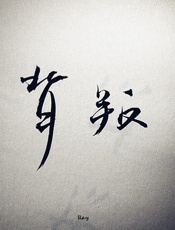 背叛
Rey